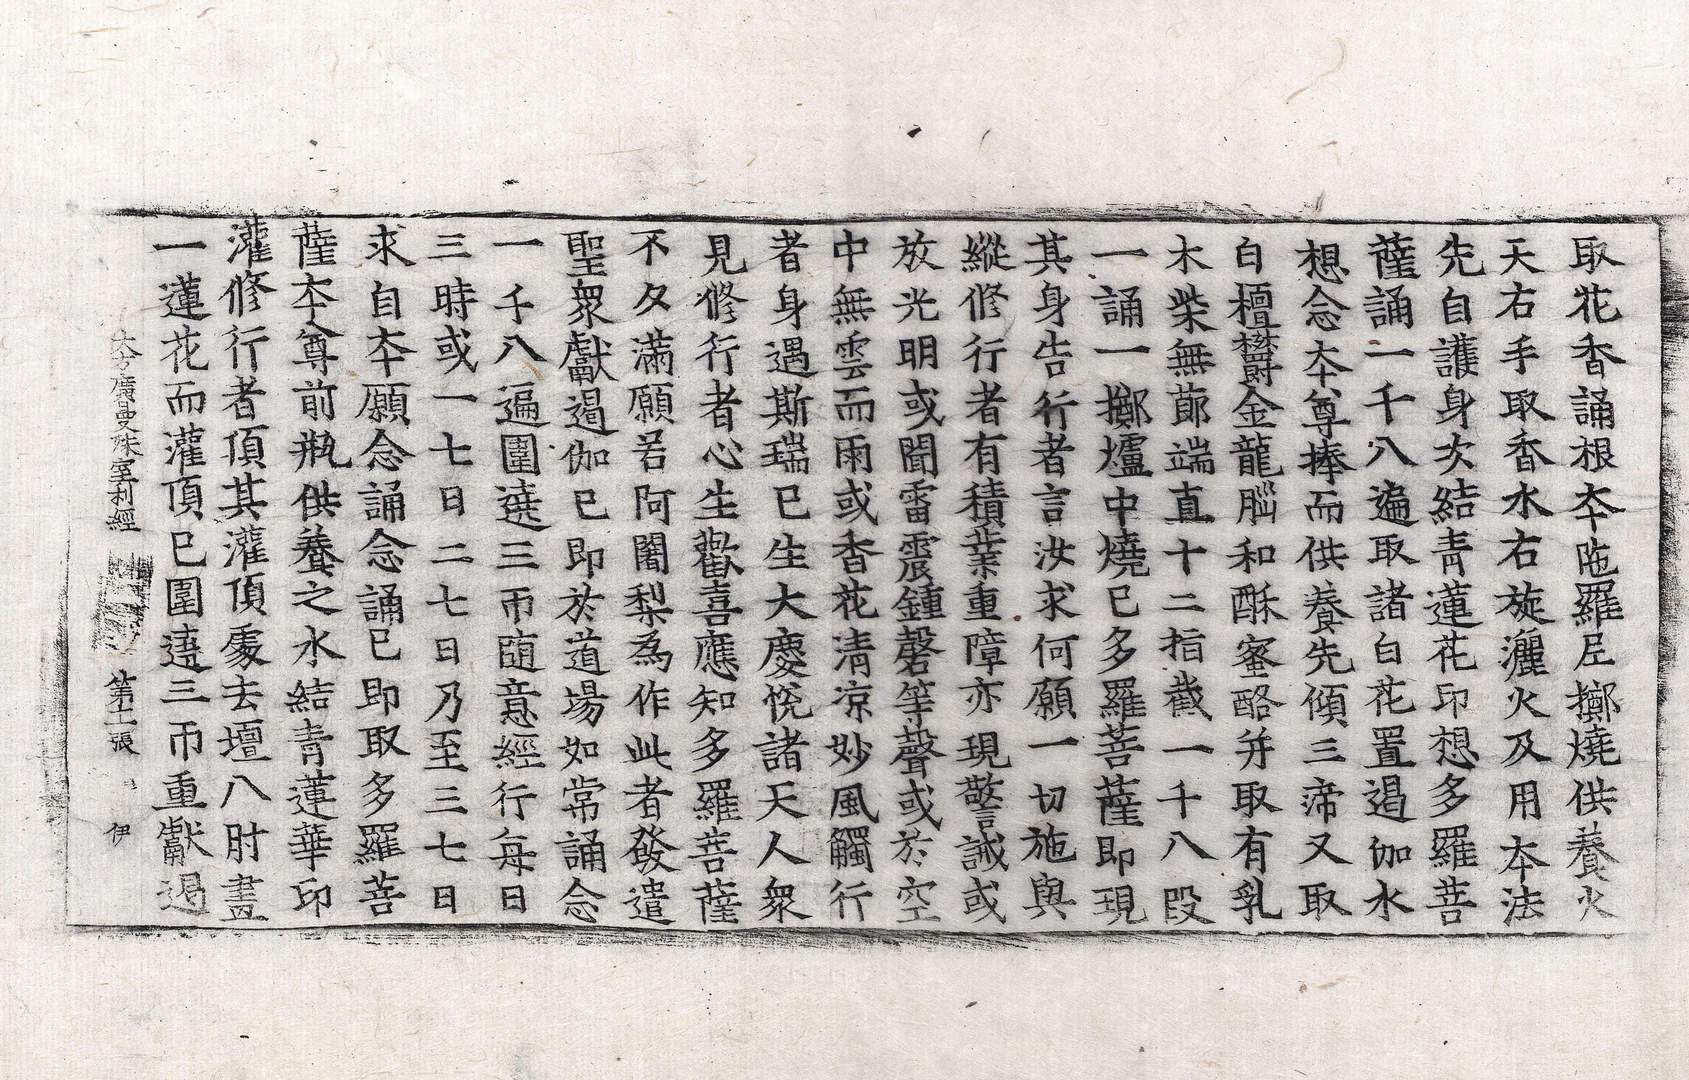 取花香誦根夲陁羅尼擲燒供養火
天右手取香水右旋灑火及用夲法
先自護身次結青蓮花印想多羅菩
薩誦一千八遍取諸白花置遏伽水
想念夲尊捧而供養先傾三渧又取
白檀欝金龍腦和酥蜜酪并取有乳
木柴無莭端直十二指截一千八段
一誦一擲爐中燒已多羅菩薩即現
其身告行者言汝求何願一切施與
縱修行者有積業重障亦現警誡或
放光明或聞雷震鍾磬等聲或於空
中無雲而雨或香花清凉妙風觸行
者身遇斯瑞已生大慶悅諸天人衆
見修行者心生歡喜應知多羅菩薩
不久滿願若阿闍梨為作此者發遣
聖衆獻遏伽已即於道場如常誦念
一千八遍圍遶三帀随意經行每日
三時或一七日二七日乃至三七日
求自夲願念誦念誦已即取多羅菩
薩夲尊前瓶供養之水結青蓮華印
灌修行者頂其灌頂處去壇八肘畫
一蓮花而灌頂已圍遶三帀重獻遏
大方廣曼殊室利經 第二張 伊